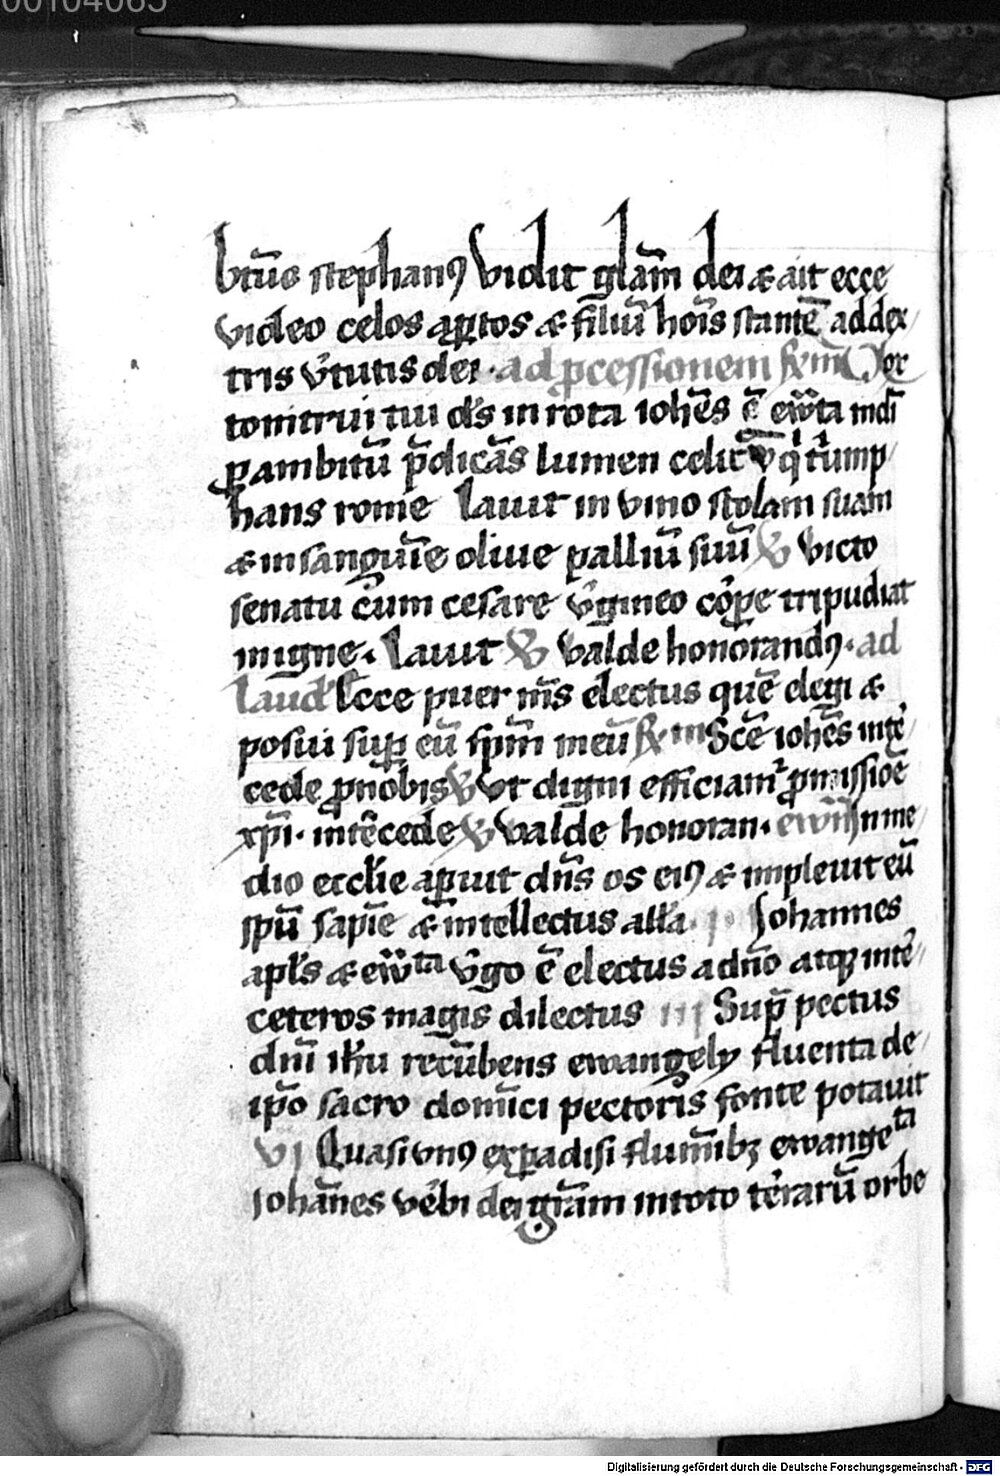 00104065
btūs stephanꝯ vidit gl̄am dei & ait ecce
video celos ap̲tos & filiū hoīs stantē ad dex
tris v̓tutis dei · ad p̲cessionem Vox
tonitrui tui ds̄ in rota ioh̄es ē ew̄ta mdī
p̲ ambitū p̄dicās lumen celic
hans rome lavit in vino stolam suam
& in sanguīe olive palliū suū ℣ victo
senatu cum cesare v̓gineo cōr̲e tripudiat
in igne · lavit ℣ valde honorandꝯ · ad
laud̄ Ecce puer m̄s electus quē elegi &
posui sup̲ eū sp̄m meū Sc̄e ioh̄es int̓
cede p̲ nobis ℣ vt digni efficiam̓ p̲missiōe
xp̄i · int̓cede ℣ valde honoran · ew̄ In me
dio eccl̄ie ap̲uit dn̄s os eiꝯ & impleuit eū
sp̄u sapīe & intellectus all̄a · Johannes
apl̄s & ew̄ta v̓go ē electus a dn̄o atqꝫ int̓
ceteros magis dilectus iij Sup̲ pectus
dn̄i ih̄u recūbens ewangelÿ fluenta de
ip̄o sacro domīci pectoris fonte potauit
vj Quasi vnꝯ ex p̲adisi flumībꝫ ewangeta
Johān̄es v̓bi dei gr̄am in toto t̓rarū orbe
Digitalisierung gefördert durch die Deutsche Forschungsgemeinschaft - DFG